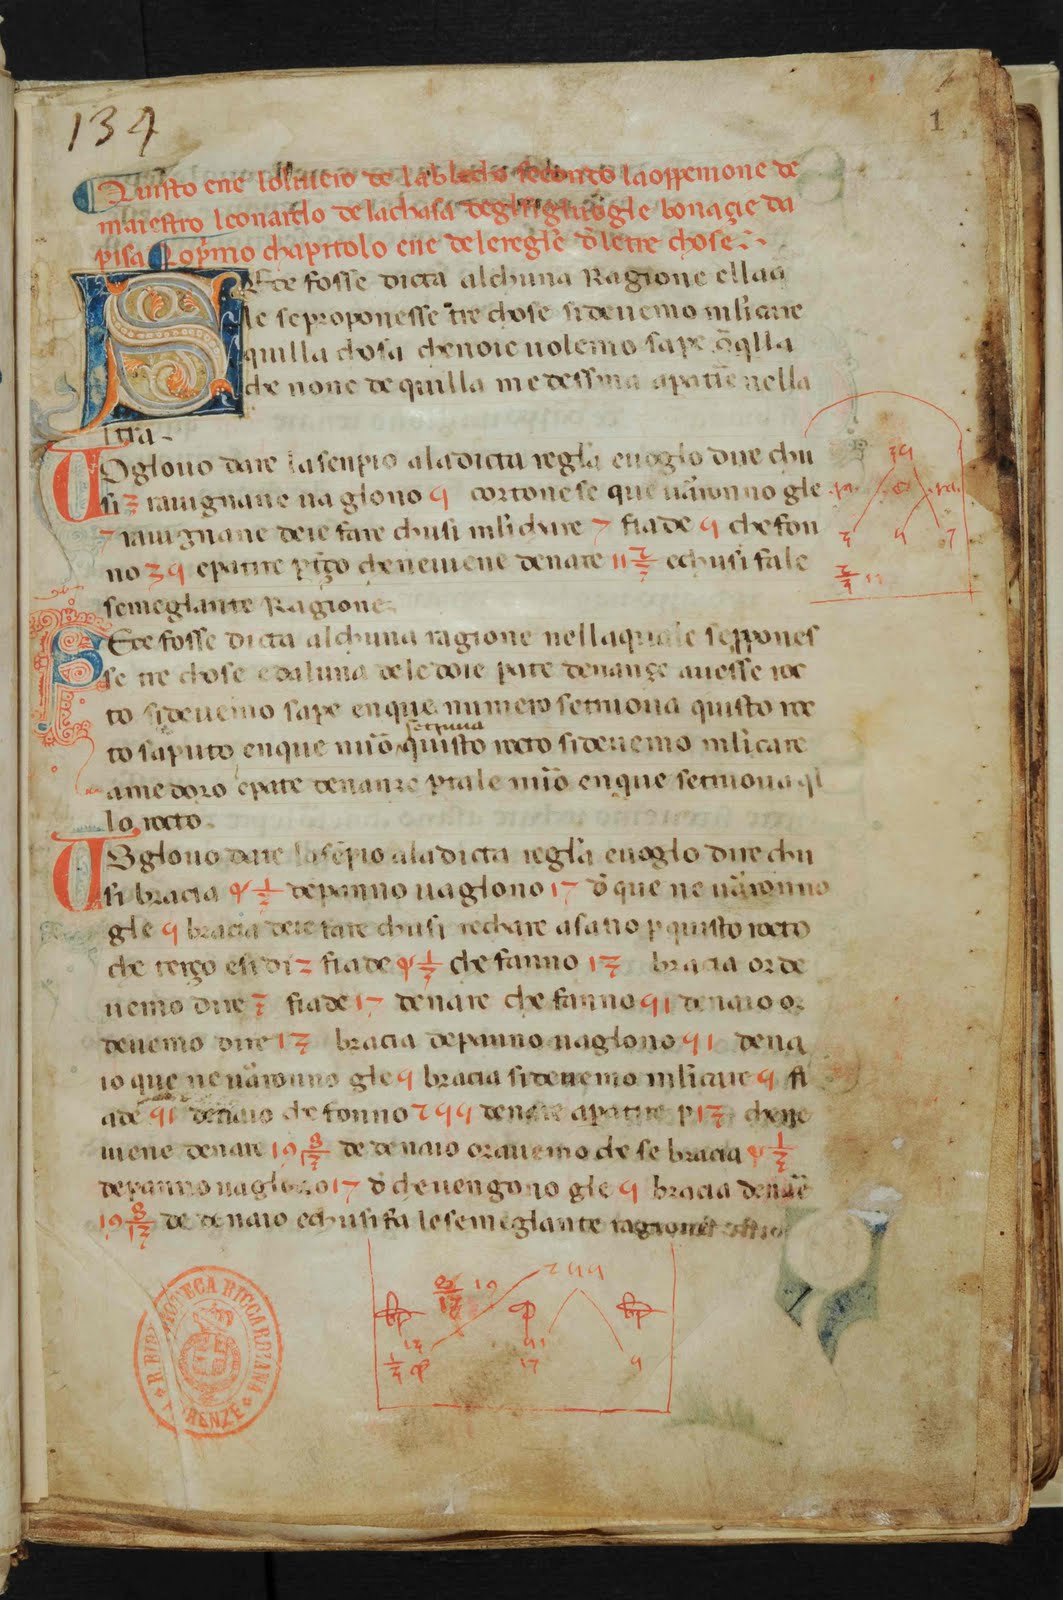 134
1
Quisto ene lolivero de labbecho secondo laoppenione de
maiestro leonardo delachasa degligluogle bonaçie da
pisa Lop̄mo chapitolo ene deleregle d̄letre chose
Sece fosse dicta alchuna Ragione ellaq̄
le seproponesse tre chose sidevemo ml̄icare
quilla chosa chenoie volemo sap̱e ꝯq̄lla
che none dequilla medessma apart̄e nella
ltra
Uoglono dare lasenpio aladicta regl̄a evoglo dire chu
si 3 ravignane vaglono 5 cortonese que varonno gle
7 ravignane deie fare chusi ml̄ichare 7 fiade 5 che fon
no 35 epartire ꝑ 3 cheneviene denare 11 2/3 echusi fale
semeglante Ragione
Sece fosse dicta alchuna ragione nellaquale seppones
se tre chose edaluna dele doie parte denançe avesse roc
to sidevemo sap̱e enque numero setrova quisto roc
to saputo enque nūo setruva quisto rocto sidevemo ml̄icare
amedoro eparte denançe ꝑtale nūo enque setrovaq̄l
lo rocto
Uoglono dare lasēpio aladicta regl̄a evoglo dire chu
si bracia 4 1/3 depanno vaglono 17 d̄ que ne varonno
gle 5 bracia deie fare chusi rechare asano ꝑquisto rocto
che terço esidi 3 fiade 4 1/3 che fanno 13 bracia orde
vemo dire 3 fiade 17 denare che fanno 51 denaio or
devemo dire 13 bracia depanno vaglono 51 dena
io que ne varonno gle 5 bracia sidevemo ml̄icare 5 fi
ade 51 denaio che fonno 255 denare apartire ꝑ 13 chene
viene denare 19 8/13 de denaio oravemo che se bracia 4 1/3
depanno vaglono 17 d̄ chevengono gle 5 bracia denare
19 8/13 de denaio echusi fa lesemeglante ragione
35
3 5 7
2/3 11
8/13 19 255
13 51
1/3 4 17 5
R. BIBLIOTECA RICCARDIANA
FIRENZE